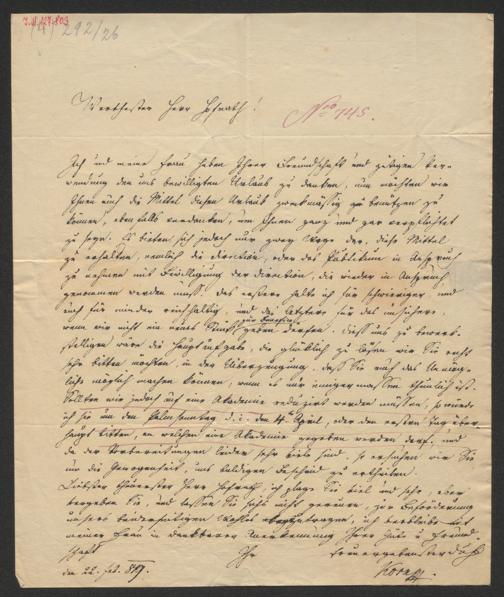 I.N. 127.803
292/26
Werthester Herr Hofrath!
No 745.
Ich und meine Frau haben Ihrer Freundschaft und gütigen Ver-
wendung den uns bewilligten Urlaub zu danken, nun möchten wir
Ihnen auch die Mittel diesen Urlaub zweckmässig zu benützen zu
können, ebenfalls verdanken, um Ihnen ganz und gar verpflichtet
zu seyn. Es bieten sich jedoch nur zwey Wege dar, diese Mittel
zu erhalten, nemlich die Direction, oder das Publikum in Anspruch
zu nehmen mit Bewilligung der Direction, die wieder in Anspruch
genommen werden muß. Das erstere halte ich für schwieriger und
auch für minder reichhaltig, und das letztere für das unsichere,
wenn wir nicht ein neues Stück zum Benefice geben dürfen. Dieß uns zu bewerk-
stelligen wäre die Hauptaufgabe, die glücklich zu lösen wir Sie recht
sehr bitten möchten, in der Ueberzeugung, dass Sie auch das Unmög-
liche möglich machen können, wenn es nur einigermassen thunlich ist.
Sollten wir jedoch auf eine Akademie reduzirt werden müssen, so würde
ich sie um den Palmsonntag d. i. den 4t April, oder den ersten Tag über-
haupt bitten, an welchem eine Akademie gegeben werden darf, und
da der Vorbereitungen leider sehr viele sind, so ersuchen wir Sie
um die Gewogenheit, uns baldigen Bescheid zu ertheilen.
Liebster theuerster Herr Hofrath, ich plage Sie viel und sehr, aber
vergeben Sie, und lassen Sie sichs nicht gereuen, zur Beförderung
unsers beiderseitigen Wohles beyzutragen, ich verbleibe mit
meiner Frau in dankbarer Anerkennung Ihrer Huld und Freund-
schaft
Ihr
treuergebenster
den 22. Feb. 819.
Korn